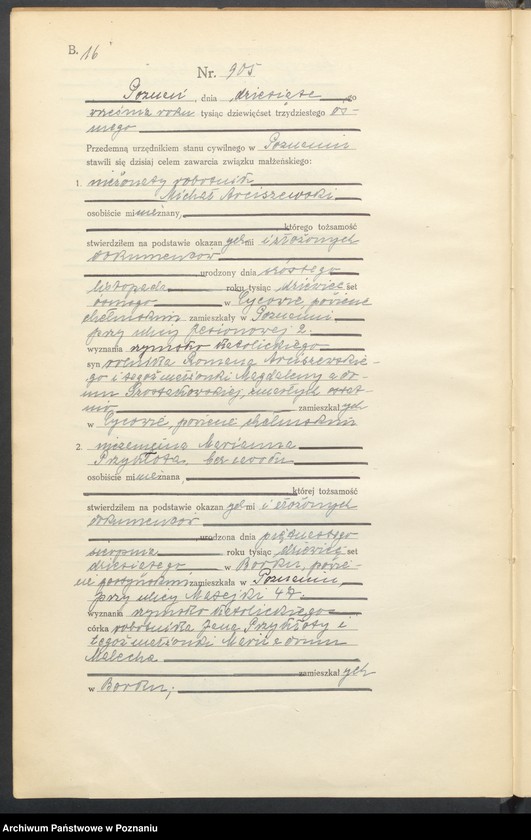 B. 16
Nr. 905
Poznań, dnia dziesiątego
września roku tysiąc dziewięćset trzydziestego ós-
mego
Przedemną urzędnikiem stanu cywilnego w Poznaniu
stawili się dzisiaj celem zawarcia związku małżeńskiego:
1. nieżonaty robotnik
Michał Arciszewski
osobiście mi nieznany,
którego tożsamość
stwierdziłem na podstawie okazanych mi i złożonych
dokumentów
urodzony dnia szóstego
listopada roku tysiąc dziewięćset
ósmego w Cycowie, powiecie
chełmskim zamieszkały w Poznaniu
przy ulicy Jesionowej 2.
wyznania rzymsko katolickiego
syn rolnika Romana Arciszewskie-
go i tegoż małżonki Magdaleny z do-
mu zmarłych ostat-
nio zamieszkałych
w Cycowie, powiecie chełmskim
2. niezamężna Marianna
Przykłota, bez zawodu
osobiście mi nieznana,
której tożsamość
stwierdziłem na podstawie okazanych mi i złożonych
dokumentów
urodzona dnia piętnastego
sierpnia roku tysiąc dziewięćset
dziesiątego w Borku, powie-
cie gostyńskim zamieszkała w Poznaniu,
przy ulicy Matejki 47.
wyznania rzymsko katolickiego
córka robotnika Jana Przykłoty i
tegoż małżonki Marii z domu
Malecha
zamieszkałych
w Borku;
Archiwum Państwowe w Poznaniu